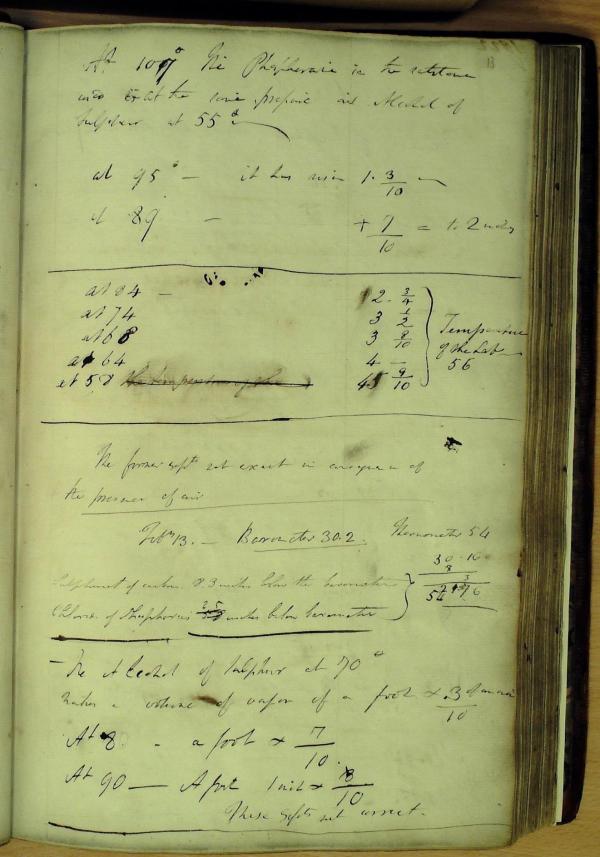 13
At 107° the Phosphorane in the retort
was at the same pressure as Alcohol of
Sulphur at 55°
at 95° — it has risen 1. 3/10
at 89 — + 7/10 = to 2 inches
at 84 — 2. 3/4
at 74 3 1/2
at 68 3 8/10
at 64 4 —
at 58 the temperature of the 4 9/10
Temperature
of the Lab
56
The former expts not exact in consequence of
the presence of air
Feby 13. — Barometer 30.2. Thermometer 54
30.10
Sulphuret of carbon 8.3 inches below the barometer
Chloride of Phosphorus inches below barometer
— The Alcohol of Sulphur at 70°
makes a volume of vapor of a foot × 3/10
At 8 - a foot × 7/10.
At 90 — A foot 1 inch × 8/10
These expts not correct.